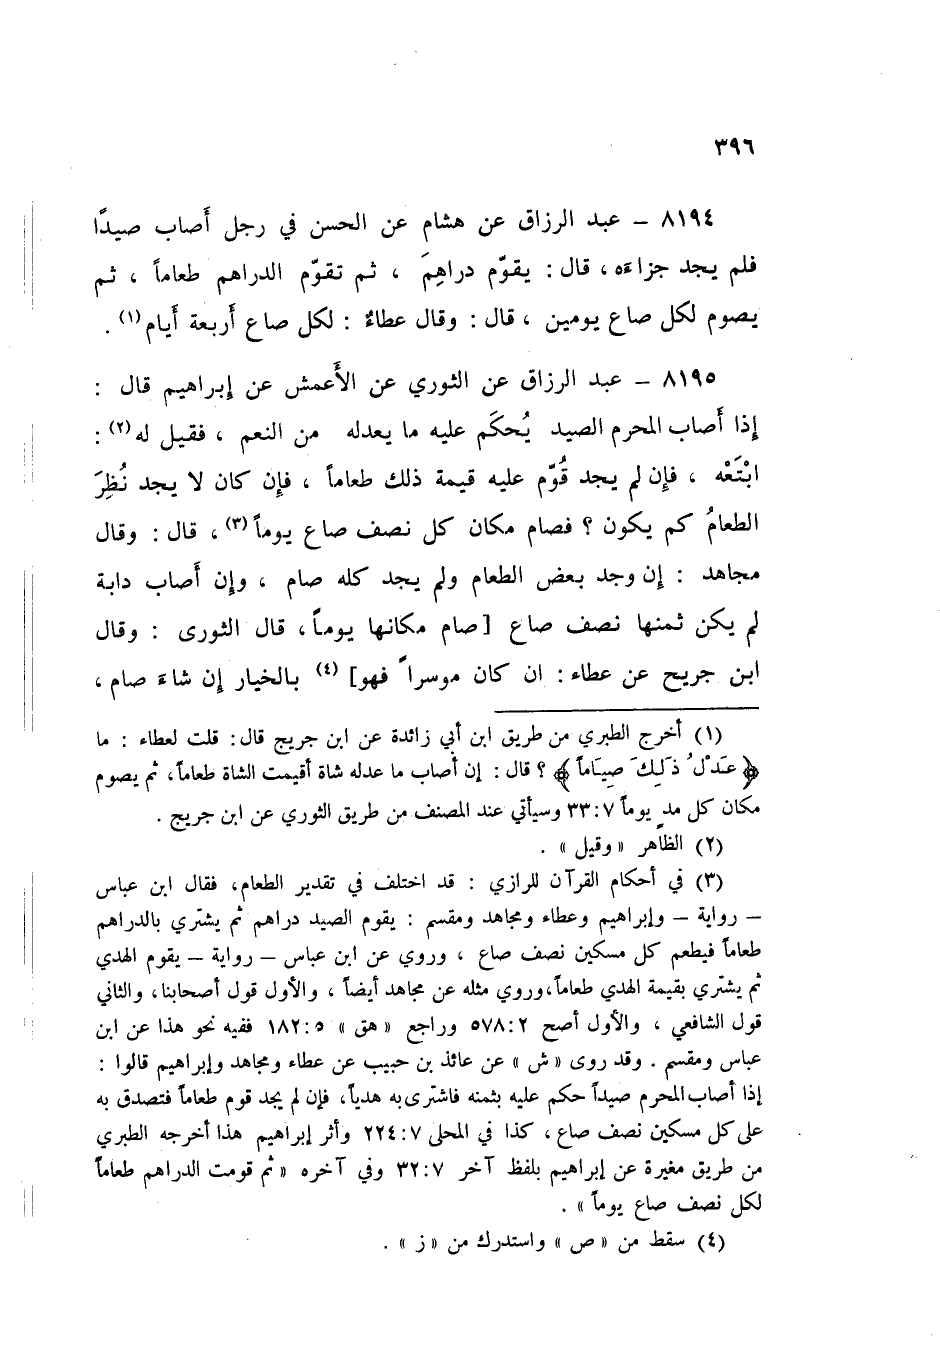 ٣٩٦
٨١٩٤ – عبد الرزاق عن هشام عن الحسن في رجل أَصاب صيدًا
فلم يجد جزاءَه ، قال : يقوّم دراهِمَ ، ثم تقوّم الدراهم طعاماً ، ثم
يصوم لكل صاع يومين ، قال : وقال عطاءٌ : لكل صاع أَربعة أَيام (١) .
٨١٩٥ – عبد الرزاق عن الثوري عن الأَعمش عن إبراهيم قال :
إِذا أَصاب المحرم الصيد يُحكَم عليه ما يعدله من النعم ، فقيل له (٢) :
ابْتَعْه ، فإن لم يجد قُوِّم عليه قيمة ذلك طعاماً ، فإن كان لا يجد نُظِرَ
الطعامُ كم يكون ؟ فصام مكان كل نصف صاع يوماً (٣) ، قال : وقال
مجاهد : إن وجد بعض الطعام ولم يجد كله صام ، وإن أَصاب دابة
لم يكن ثمنها نصف صاع [صام مكانها يوماً ، قال الثورى : وقال
ابن جريح عن عطاء : ان كان موسراً فهو] (٤) بالخيار إن شاءَ صام ،
(١) أخرج الطبري من طريق ابن أبي زائدة عن ابن جريج قال : قلت لعطاء : ما
﴿ عَدْلُ ذَلِكَ صِيَاماً ﴾ ؟ قال : إن أصاب ما عدله شاة أقيمت الشاة طعاماً ، ثم يصوم
مكان كل مد يوماً ٧ : ٣٣ وسيأتي عند المصنف من طريق الثوري عن ابن جريج .
(٢) الظاهر « وقيل » .
(٣) في أحكام القرآن للرازي : قد اختلف في تقدير الطعام ، فقال ابن عباس
– رواية – وإبراهيم وعطاء ومجاهد ومقسم : يقوم الصيد دراهم ثم يشتري بالدراهم
طعاماً فيطعم كل مسكين نصف صاع ، وروي عن ابن عباس – رواية – يقوم الهدي
ثم يشتري بقيمة الهدي طعاماً ، وروي مثله عن مجاهد أيضاً ، والأول قول أصحابنا ، والثاني
قول الشافعي ، والأول أصح ٢ : ٥٧٨ وراجع « هق » ٥ : ١٨٢ ففيه نحو هذا عن ابن
عباس ومقسم . وقد روى « ش » عن عائذ بن حبيب عن عطاء ومجاهد وإبراهيم قالوا :
إذا أصاب المحرم صيداً حكم عليه بثمنه فاشترى به هدياً ، فإن لم يجد قوم طعاماً فتصدق به
على كل مسكين نصف صاع ، كذا في المحلى ٧ : ٢٢٤ وأثر إبراهيم هذا أخرجه الطبري
من طريق مغيرة عن إبراهيم بلفظ آخر ٧ : ٣٢ وفي آخره « ثم قومت الدراهم طعاماً
لكل نصف صاع يوماً » .
(٤) سقط من « ص » واستدرك من « ز » .